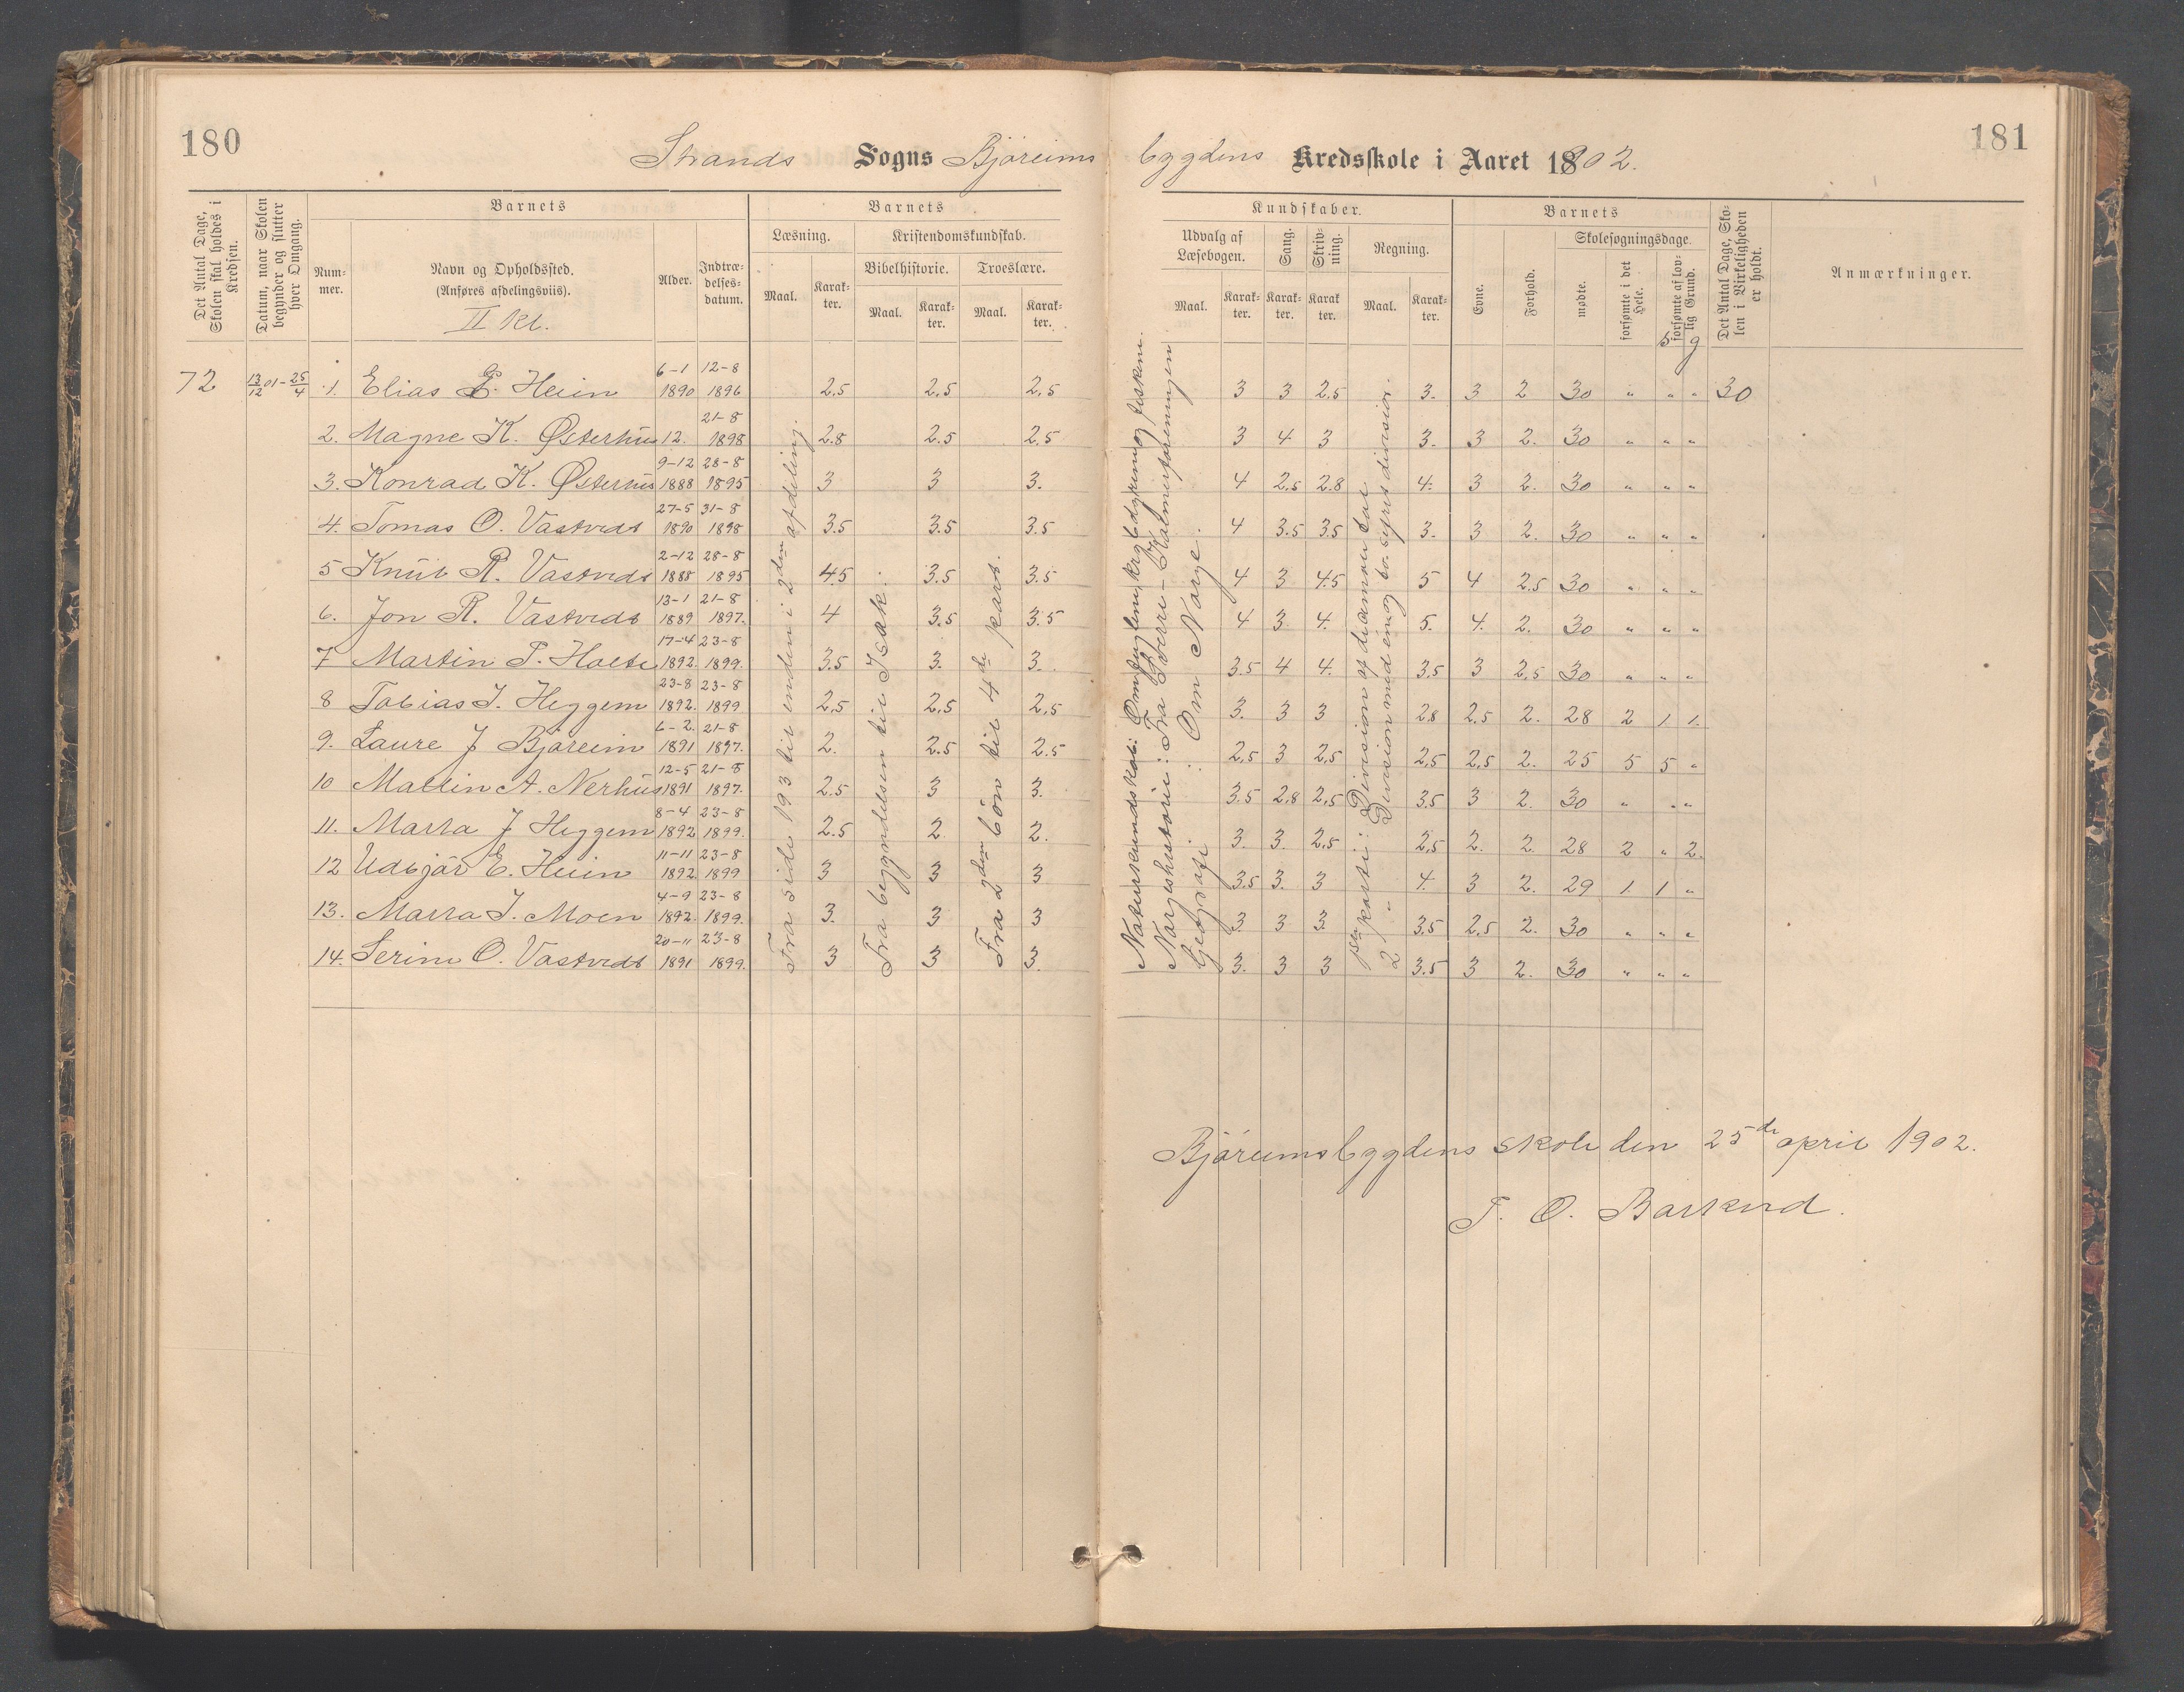 180
Strands Sogns Bjøreims bygdens Kredsskole i Aaret 1802.
181
Det Antal Dage, Skolen skal holdes i Kredsen.
Datum, naar Skolen begynder og slutter hver Omgang.
Barnets
Nummer.
Navn og Opholdssted.
(Anføres afdelingsviis).
II kl.
Alder.
Indtrædelsesdatum.
Barnets
Læsning.
Maal.
Karakter.
Kristendomskundskab.
Bibelhistorie.
Maal.
Karakter.
Troeslære.
Maal.
Karakter.
Kundskaber.
Udvalg af Læsebogen.
Maal.
Karakter.
Sang.
Karakter.
Skrivning.
Karakter.
Regning.
Maal.
Karakter.
Barnets
Evne.
Forhold.
Skolesøgningsdage.
mødte.
forsømte i det Hele.
forsømte af lovlig Grund.
s g
Det Antal Dage, Skolen i Virkeligheden er holdt.
Anmærkninger.
72 13/12 01 - 25/4 1. Elias E. Heim 6-1 1890 12-8 1896 2,5 2,5 2,5 3 3 2,5 3. 3 2 30 " " " 30
2. Magne K. Østerhus 12. 21-8 1898 2.8 2.5 2,5 3 4 3 3. 3 2. 30 " " "
3. Konrad K. Østerhus 9-12 1888 28-8 1895 3 3 3. 4 2.5 2.8 4. 3 2. 30 " " "
4. Tomas O. Vastvedt 27-5 1890 31-8 1898 3.5 3.5 3.5 4 3.5 3.5 3. 3 2. 30 " " "
5 Knut R. Vastvedt 2-12 1888 28-8 1895 4.5 3.5 3.5 4 3 4.5 5 4 2.5 30 " " "
6. Jon R. Vastvedt 13-1 1889 21-8 1897. 4 3.5 3.5 4 3 4. 5. 4. 2. 30 " " "
7 Martin T. Holte 17-4 1892. 23-8 1899. 3.5 3. 3. 3.5 4 4. 3,5 3 2,5 30 " " "
8 Tobias J. Heggem 23-8 1892. 23-8 1899 2,5 2,5 2,5 3. 3 3 2,8 2.5 2. 28 2 1 1.
9. Laure J Bjøreim 6-2. 1891 21-8 1897. 2. 2.5 2.5 2,5 3 2,5 2,5 2,5 2. 25 5 5 "
10 Mallin A. Nerhus 12-5 1891 21-8 1897. 2.5 3 3. 3.5 2,8 2,5 3.5 3 2. 30 " " "
11. Marta J Heggem 8-4 1892 23-8 1899. 2.5 2. 2. 3. 3. 2,5 2,5 2. 2. 28 2 " 2.
12 Udbjør E. Heim 11-11 1892. 23-8 1899 3 3 3 3.5 3. 3 4. 3 2. 29 1. 1 "
13. Marta J. Moen 4-9 1892. 23-8 1899. 3. 3 3 3. 3 3. 3,5 2,5 2. 30 " " "
14. Serine O. Vastvedt 20-11 1891 23-8 1899. 3 3 3. 3. 3 3 3.5 3 2. 30 " " "
Fra side 193 til enden i 2den afdeling.
Fra begyndelsen til Isak.
Fra 2den bøn til 4de part.
Naturkundskab: Om fuglene, krybdyrene og fiskene.
Norgeshistorie: Fra Sverre - Kalmerforeningen
Geografi: Om Norge.
parti: Division af tal
2 " Division med en og to-sifret divisior.
Bjøreimsbygdens skole den 25de april 1902.
T. O. Barkved.